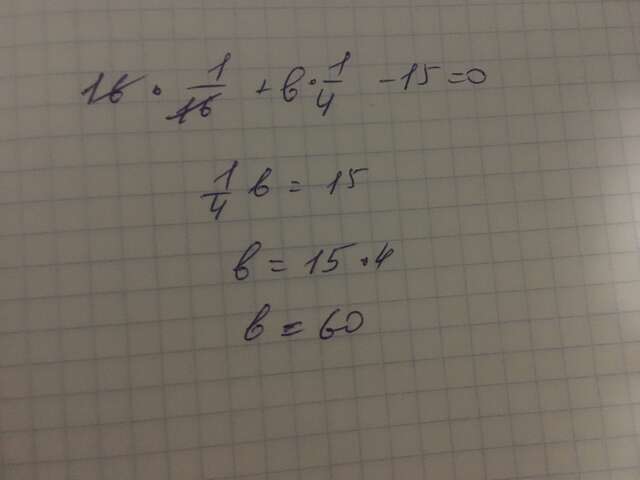 16 · 1/16 + b · 1/4 - 15 = 0
1/4 b = 15
b = 15 · 4
b = 60